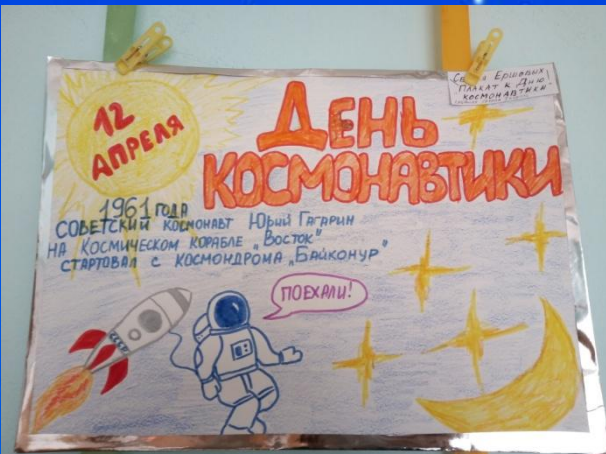 12
АПРЕЛЯ
ДЕНЬ
КОСМОНАВТИКИ
Ершовых
ПЛАКАТ К ДНЮ
КОСМОНАВТИКИ
1961 ГОДА
СОВЕТСКИЙ КОСМОНАВТ ЮРИЙ ГАГАРИН
НА КОСМИЧЕСКОМ КОРАБЛЕ „ВОСТОК"
СТАРТОВАЛ С КОСМОДРОМА „БАЙКОНУР"
ПОЕХАЛИ!
СССР